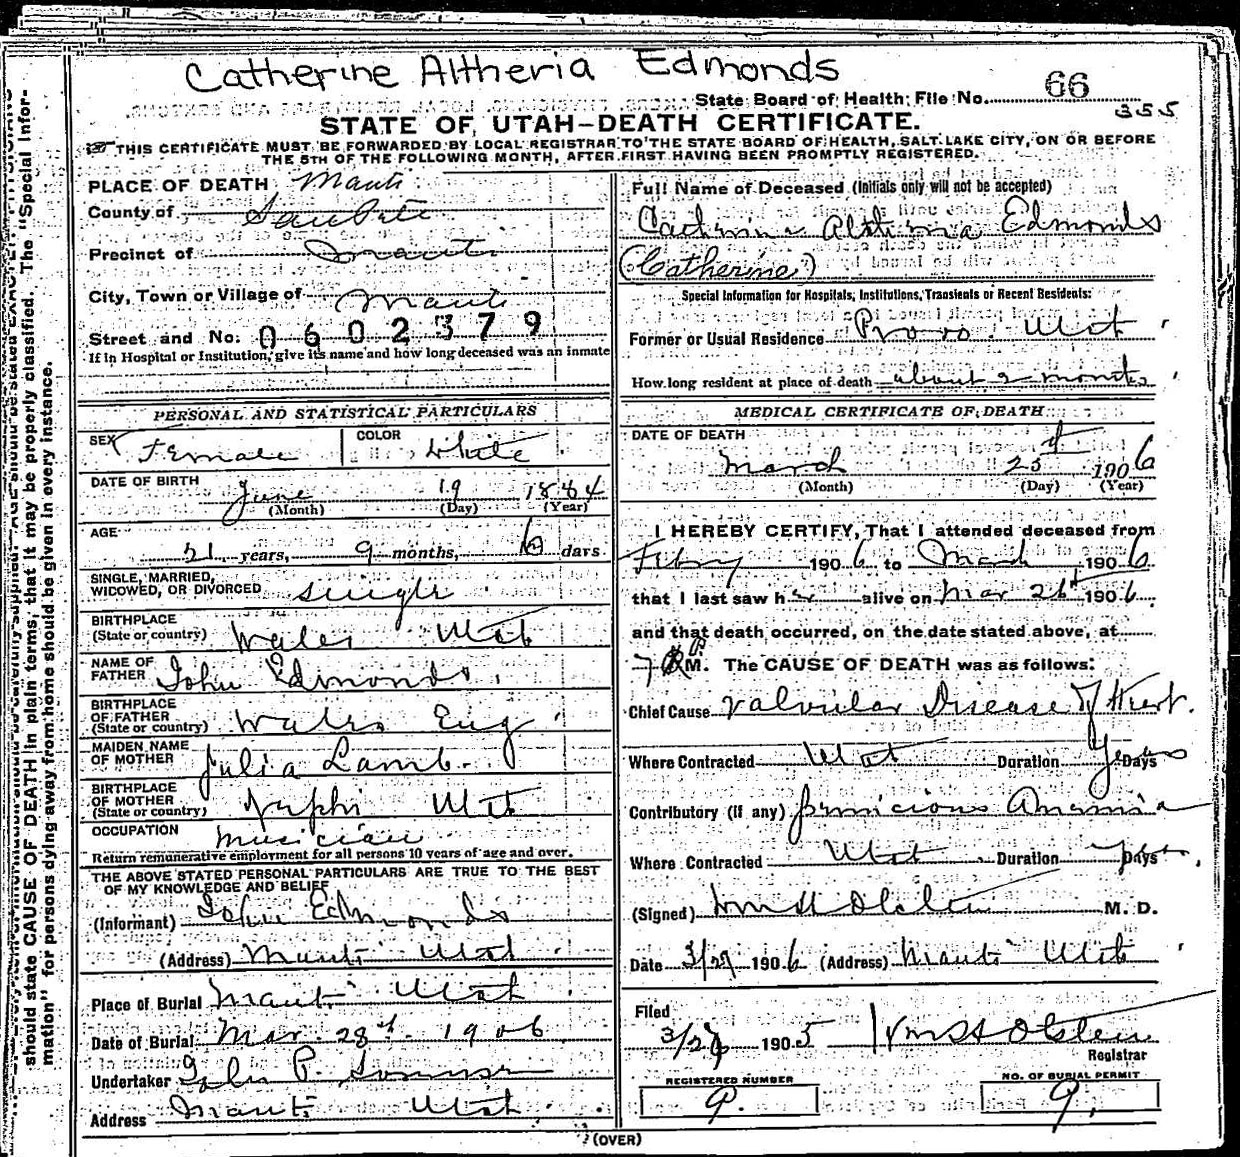 Catherine Altheria Edmonds
State Board of Health File No. 66
355
STATE OF UTAH-DEATH CERTIFICATE.
THIS CERTIFICATE MUST BE FORWARDED BY LOCAL REGISTRAR TO THE STATE BOARD OF HEALTH, SALT LAKE CITY, ON OR BEFORE
THE 5TH OF THE FOLLOWING MONTH, AFTER FIRST HAVING BEEN PROMPTLY REGISTERED.
PLACE OF DEATH Manti
County of SanPete
Precinct of Manti
City, Town or Village of Manti
Street and No. 0602379
If in Hospital or Institution, give its name and how long deceased was an inmate
PERSONAL AND STATISTICAL PARTICULARS
SEX Female COLOR White
DATE OF BIRTH June 19 1884
(Month) (Day) (Year)
AGE 21 years, 9 months, 6 days
SINGLE, MARRIED,
WIDOWED, OR DIVORCED single
BIRTHPLACE
(State or country) Wales Utah
NAME OF
FATHER John Edmonds.
BIRTHPLACE
OF FATHER
(State or country) Wales Eng
MAIDEN NAME
OF MOTHER Julia Lamb.
BIRTHPLACE
OF MOTHER
(State or country) Nephi Utah
OCCUPATION Musician
Return remunerative employment for all persons 10 years of age and over.
THE ABOVE STATED PERSONAL PARTICULARS ARE TRUE TO THE BEST
OF MY KNOWLEDGE AND BELIEF
(Informant) John Edmonds
(Address) Manti Utah
Place of Burial Manti Utah
Date of Burial Mar. 28th 1906
Undertaker John P.
Address Manti Utah
Full Name of Deceased (Initials only will not be accepted)
Catherine Altheria Edmonds
(Catherine)
Special Information for Hospitals, Institutions, Transients or Recent Residents:
Former or Usual Residence Provo Utah
How long resident at place of death about 2 months
MEDICAL CERTIFICATE OF DEATH
DATE OF DEATH
March 25th 1906
(Month) (Day) (Year)
I HEREBY CERTIFY, That I attended deceased from
Febry 1906 to March 1906
that I last saw her alive on Mar 26th 1906
and that death occurred, on the date stated above, at
7 P M. The CAUSE OF DEATH was as follows:
Chief Cause Valvular Disease of Heart.
Where Contracted Utah Duration Years Days
Contributory (if any) pernicious Anamia
Where Contracted Utah Duration Days
(Signed) Wm H Olsten M. D.
Date 3/27 1906 (Address) Manti Utah
Filed
3/27 1905 Wm H Olsten
Registrar
REGISTERED NUMBER
9.
NO. OF BURIAL PERMIT
9.
(OVER)
should state CAUSE OF DEATH in plain terms, that it may be properly classified. The "Special Infor-
mation" for persons dying away from home should be given in every instance.